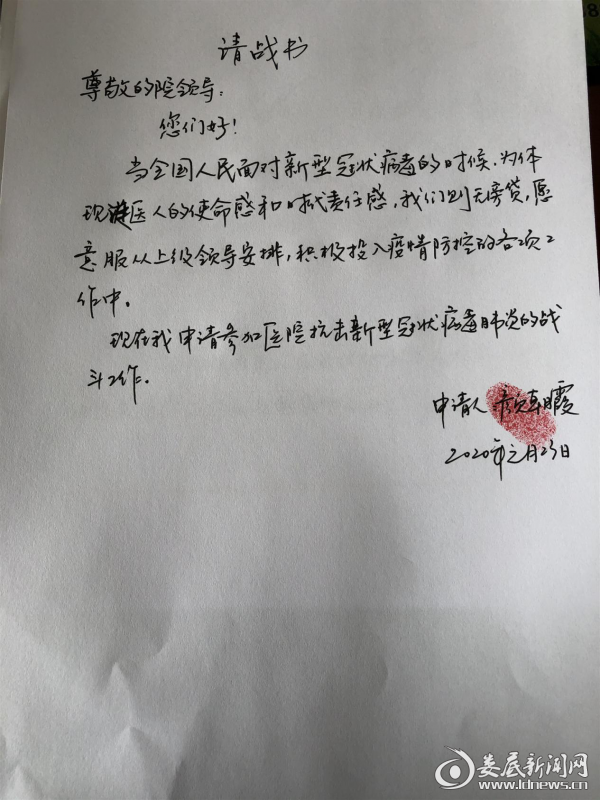 请战书
尊敬的院领导：
您们好！
当全国人民面对新型冠状病毒的时候，为体
现医人的使命感和时代责任感，我们则无旁贷，愿
意服从上级领导安排，积极投入疫情防控的各项工
作中。
现在我申请参加医院抗击新型冠状病毒肺炎的战
斗工作。
申请人 颜朝霞
2020年元月23日
娄底新闻网
www.ldnews.cn